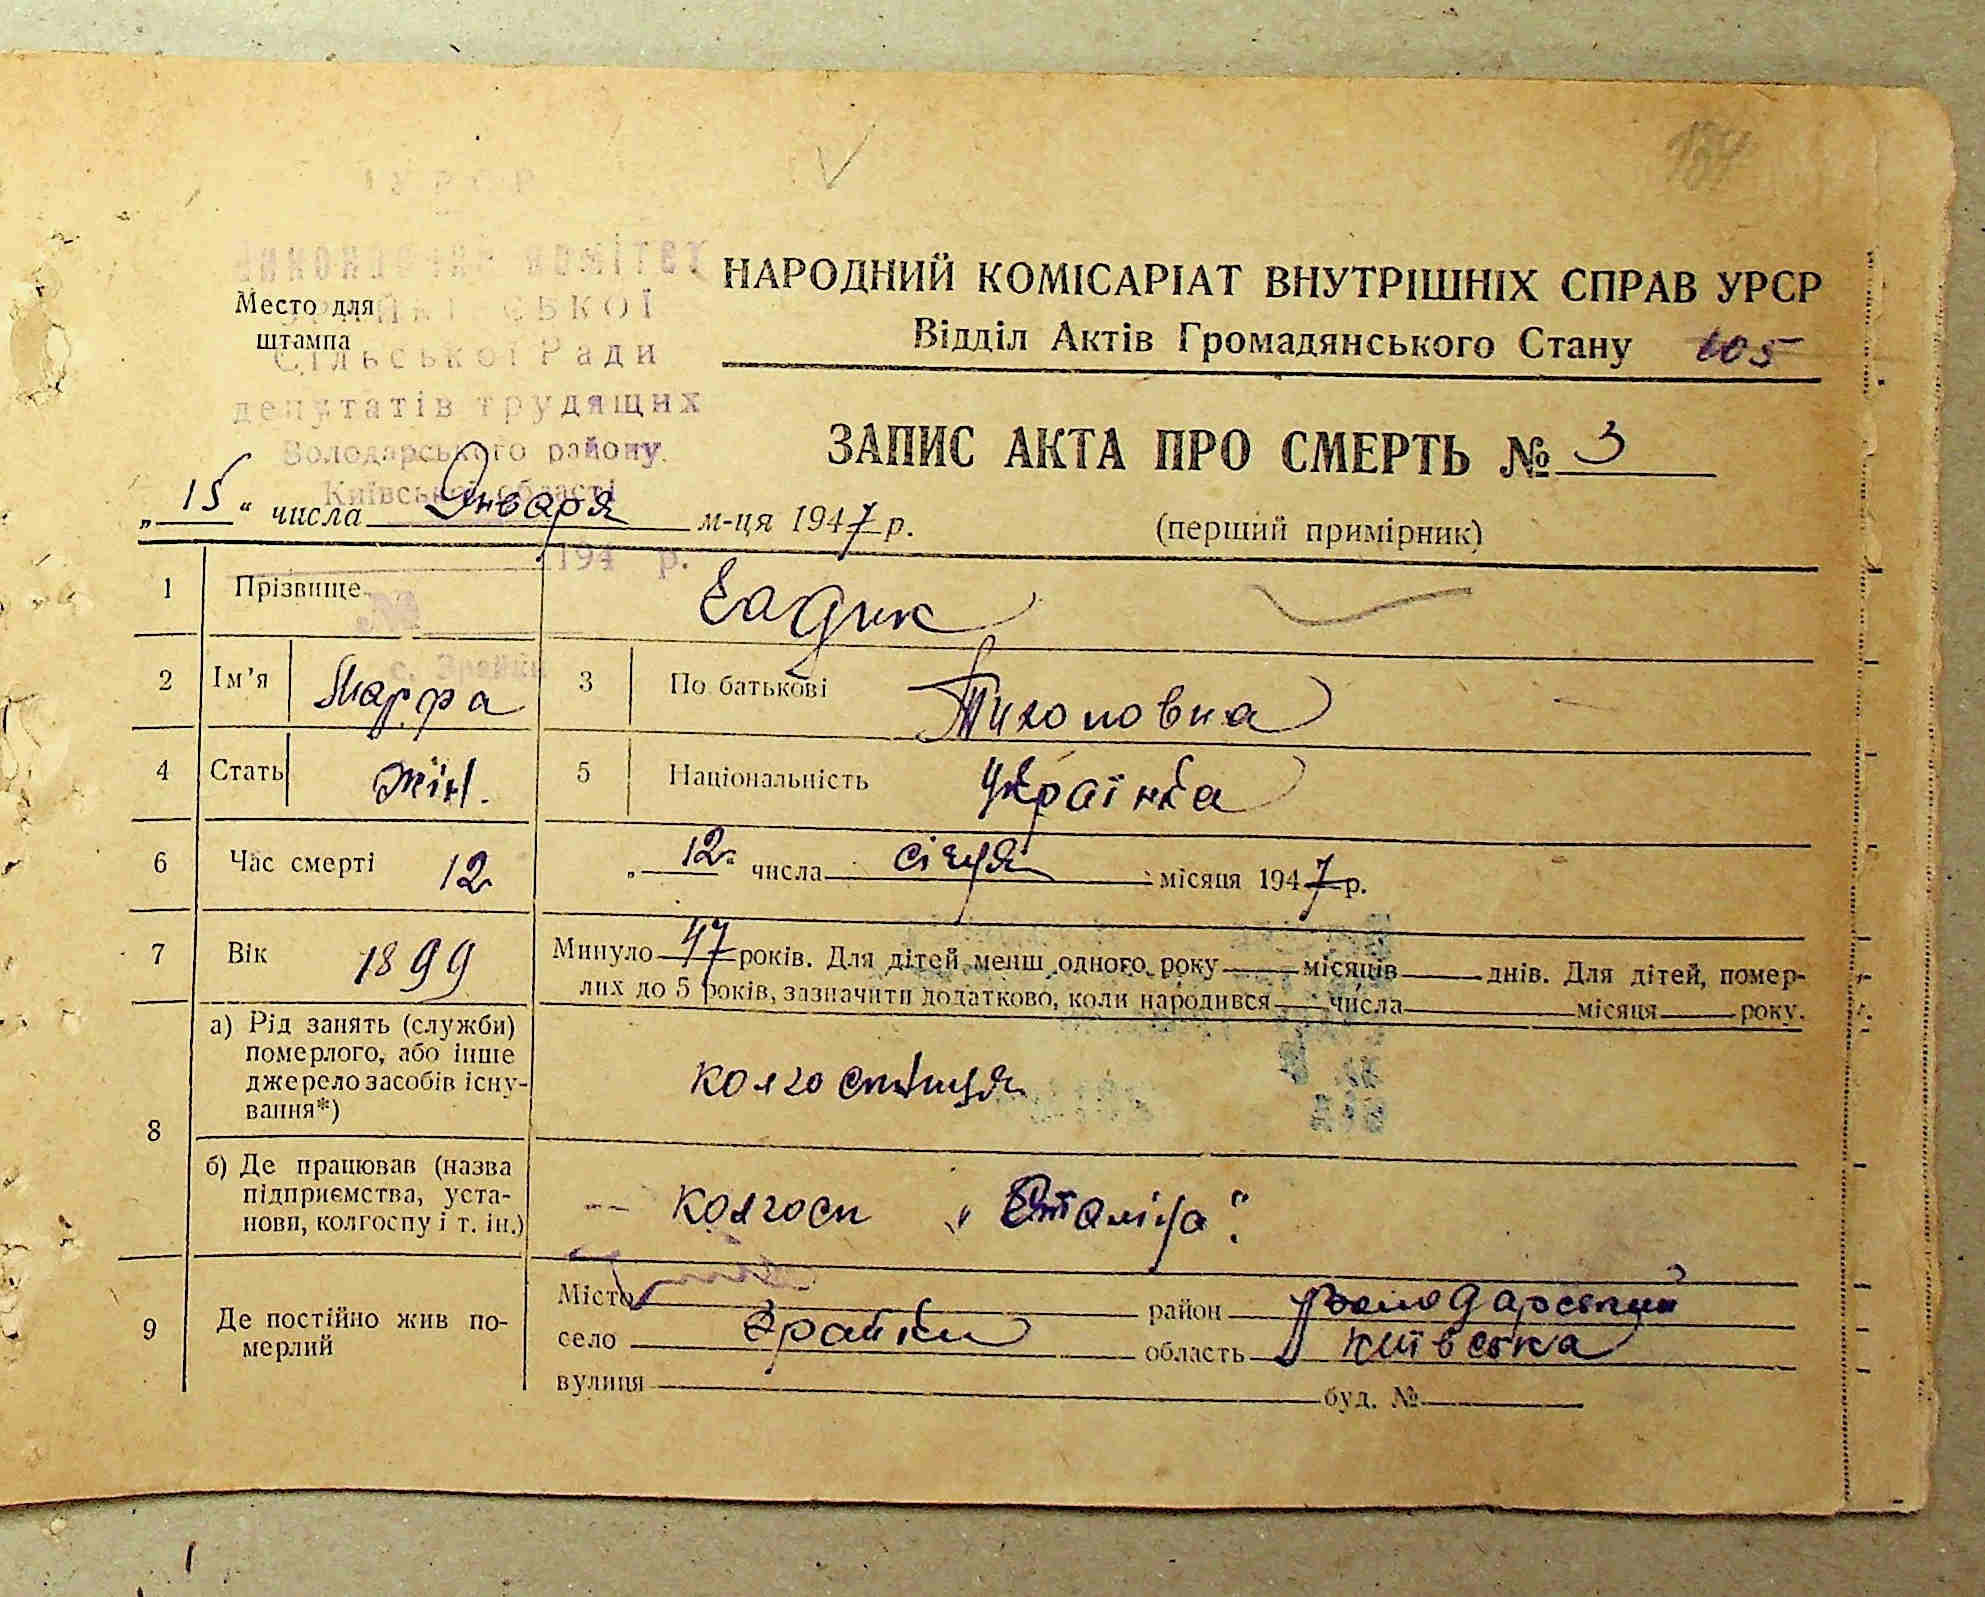 154
УРСР
Виконавчий комітет
Зрайківської
Сільської Ради
депутатів трудящих
Володарського району
Київської області
194 р.
№
с. Зрайки
Место для
штампа
НАРОДНИЙ КОМІСАРІАТ ВНУТРІШНІХ СПРАВ УРСР
Відділ Актів Громадянського Стану 105
ЗАПИС АКТА ПРО СМЕРТЬ № 3
„15“ числа Января м-ця 1947 р.
(перший примірник)
1 Прізвище Гадик
2 Ім'я Марфа 3 По батькові Тихоновна
4 Стать Жін. 5 Національність Українка
6 Час смерті 12 „12“ числа січця місяця 1947 р.
7 Вік 1899 Минуло 47 років. Для дітей менш одного року місяців днів. Для дітей, помер-
лих до 5 років, зазначити додатково, коли народився числа місяця року.
8 а) Рід занять (служби)
померлого, або інше
джерело засобів існу-
вання*)
колгоспниця
б) Де працював (назва
підприємства, уста-
нови, колгоспу і т. ін.)
колгосп „Сталіна“.
9 Де постійно жив по-
мерлий
Місто район Володарський
село Зрайки область Київська
вулиця буд. №